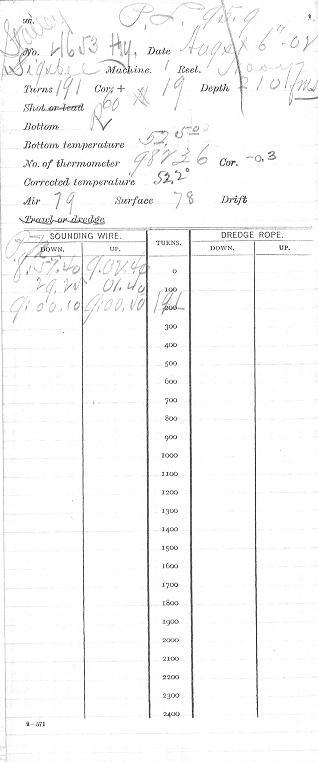 P. L. 959
107.
No. 4653 Hy. Date Aug 6" 02
Sigsbee Machine. 1 Reel.
Turns 191 Cor. + 19 Depth 210 fms
Shot or lead 60
Bottom R
Bottom temperature 52.5°
No. of thermometer 98236 Cor. -0.3
Corrected temperature 52.2°
Air 79 Surface 78 Drift
Trawl or dredge
SOUNDING WIRE. TURNS. DREDGE ROPE.
DOWN. UP. DOWN. UP.
8.57.40 9.02.40 0
01.40 100
9.00.10 9.00.40 191 200
300
400
500
600
700
800
900
1000
1100
1200
1300
1400
1500
1600
1700
1800
1900
2000
2100
2200
2300
2400
2—571